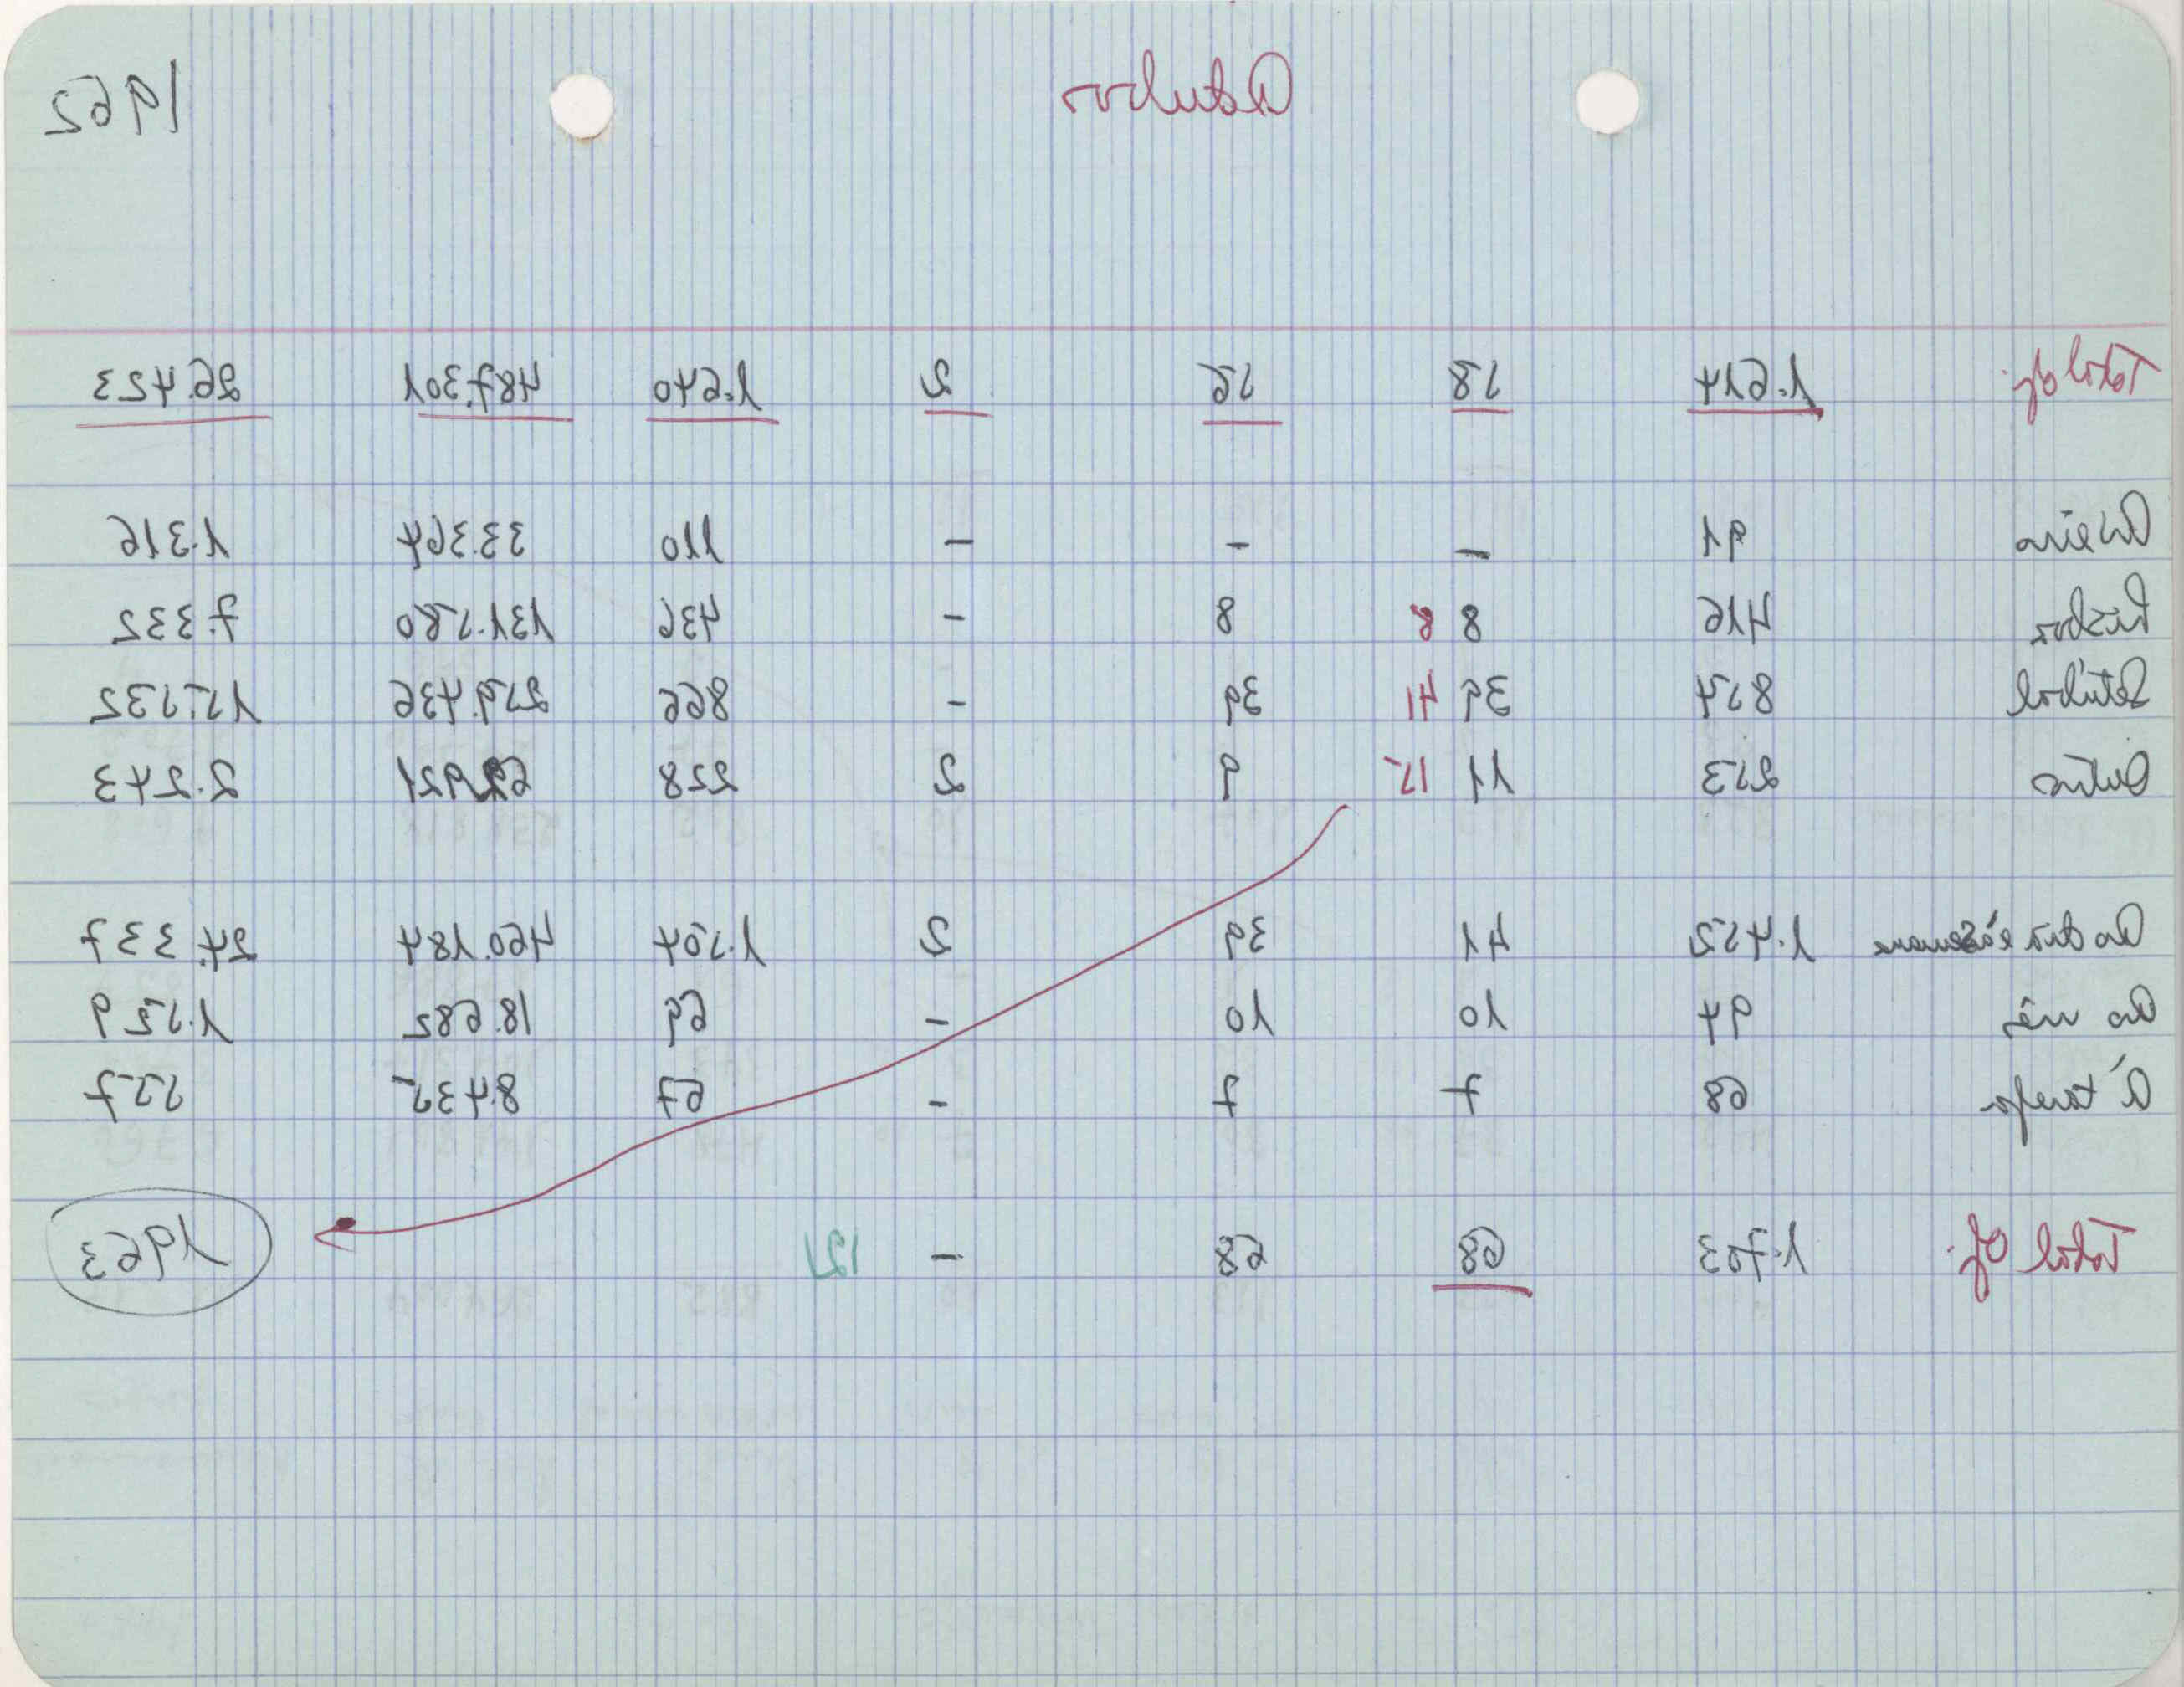 Adubos 1962
Total of. 1.614 58 56 2 1.640 487.301 26.423
Aveiro 91 - - - 110 33.364 1.316
Lisboa 416 8 8 8 - 436 131.580 7.332
Setúbal 854 39 41 39 - 866 259.436 15.532
Outros 253 11 15 9 2 228 62.921 2.243
Ao dia e à semana 1.452 41 39 2 1.504 460.184 24.337
Ao mês 94 10 10 - 69 18.682 1.529
À tarefa 68 7 7 - 67 8.435 557
Total of. 1.703 68 68 - 1963